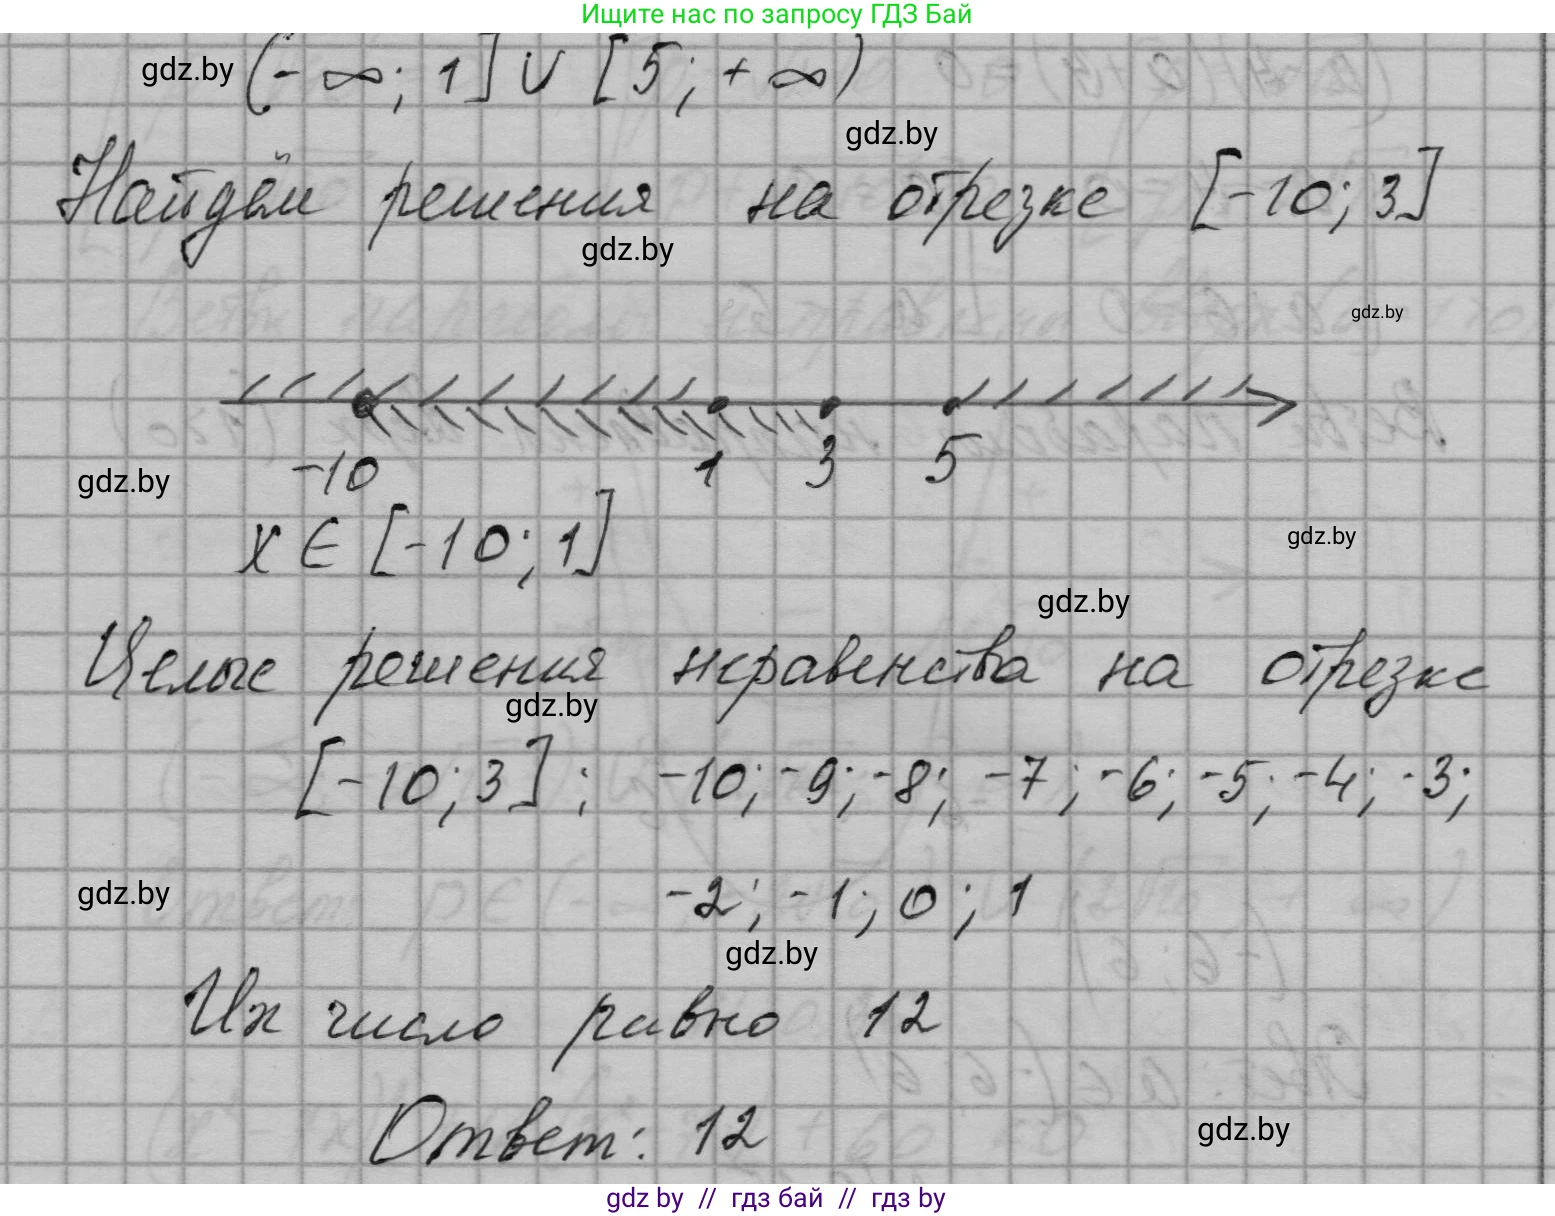 Ищите нас по запросу ГДЗ Бай
gdz.by (-∞; 1] ∪ [5; +∞)
gdz.by
Найдём решения на отрезке [-10; 3]
gdz.by
gdz.by
-10 1 3 5
gdz.by
x ∈ [-10; 1]
gdz.by
gdz.by
Целые решения неравенства на отрезке
gdz.by
[-10; 3]: -10; -9; -8; -7; -6; -5; -4; -3;
gdz.by -2; -1; 0; 1
gdz.by
Их число равно 12
Ответ: 12
gdz.by
gdz by // гдз бай // гдз by